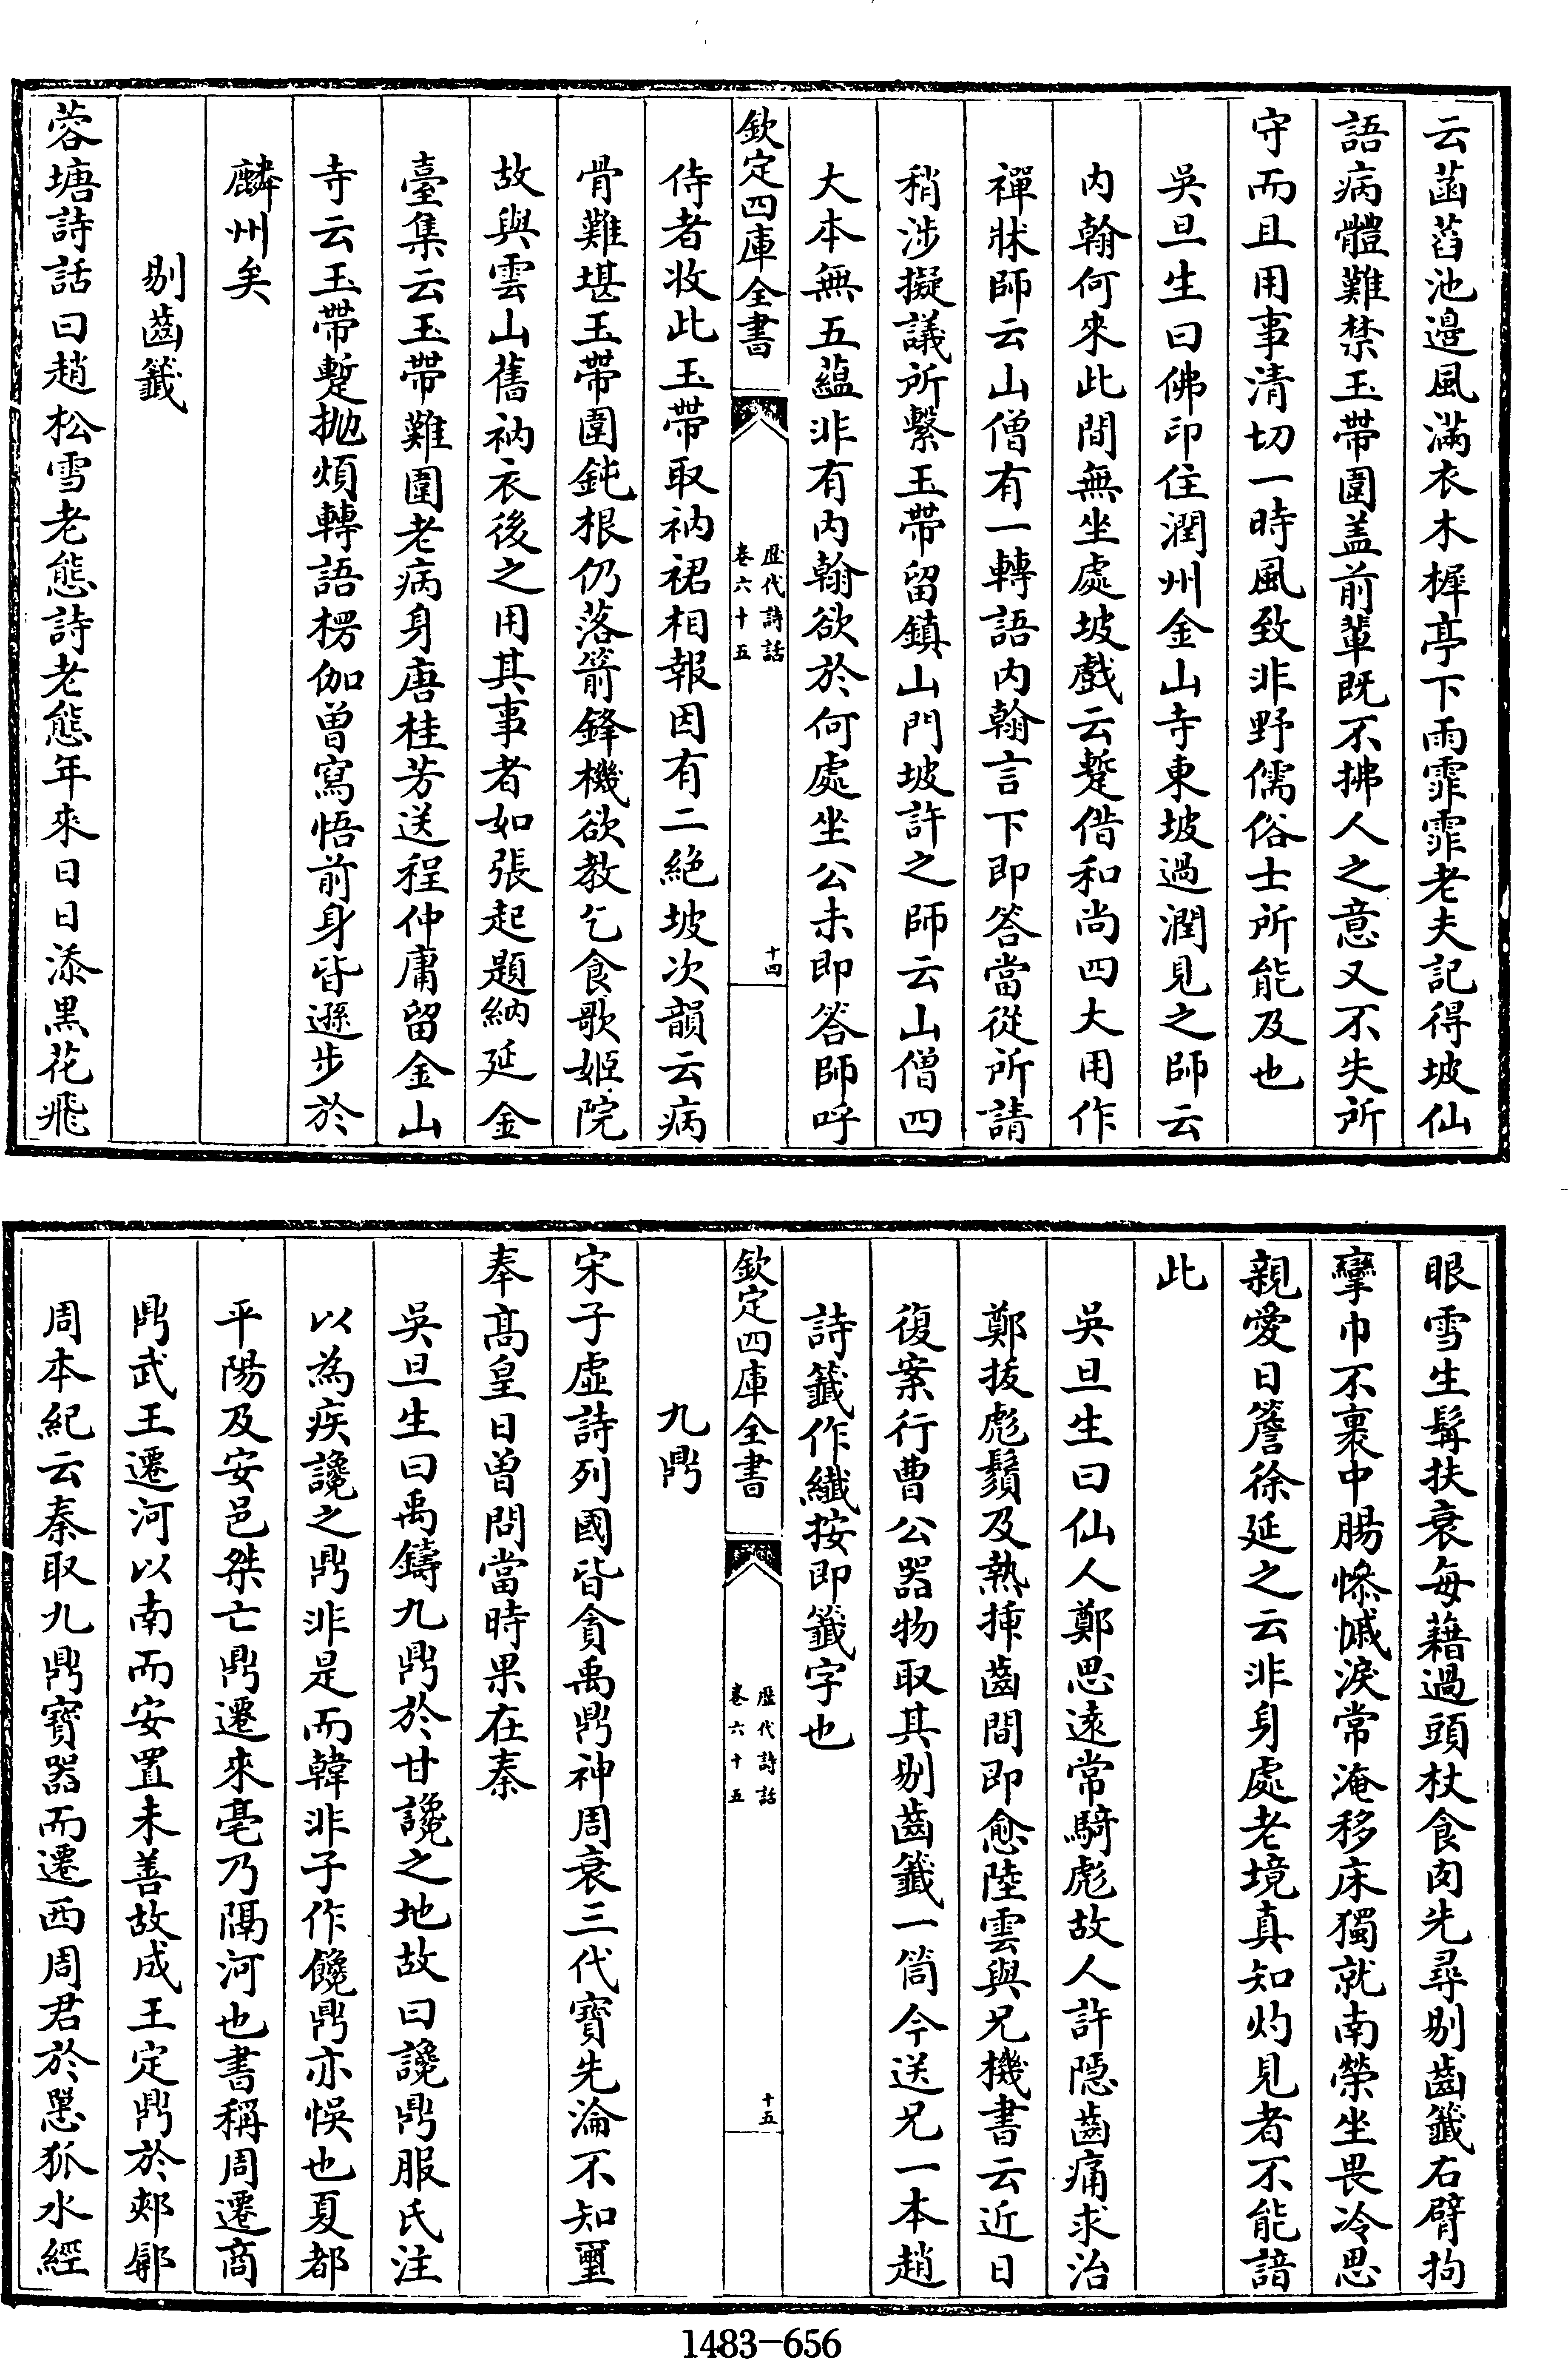 云菡萏池邊風滿衣木樨亭下雨霏霏老夫記得坡仙
語病體難禁玉帶圍盖前輩既不拂人之意又不失所
守而且用事清切一時風致非野儒俗士所能及也
吳旦生曰佛印住潤州金山寺東坡過潤見之師云
内翰何來此間無坐處坡戲云蹔借和尚四大用作
禪牀師云山僧有一轉語内翰言下即答當從所請
稍涉擬議所繫玉帶留鎮山門坡許之師云山僧四
大本無五藴非有内翰欲於何處坐公未即答師呼
欽定四庫全書
歴代詩話
卷六十五
十四
侍者收此玉帶取衲裙相報因有二絶坡次韻云病
骨難堪玉帶圍鈍根仍落箭鋒機欲教乞食歌姬院
故與雲山舊衲衣後之用其事者如張起題納延金
臺集云玉帶難圍老病身唐桂芳送程仲庸留金山
寺云玉帶蹔抛煩轉語楞伽曽寫悟前身皆遜步於
麟州矣
剔齒籤
蓉塘詩話曰趙松雪老態詩老態年來日日添黒花飛
眼雪生髯扶衰每藉過頭杖食肉先尋剔齒籤右臂拘
攣巾不裹中腸慘慽淚常淹移床獨就南榮坐畏冷思
親愛日簷徐延之云非身處老境真知灼見者不能諳
此
吳旦生曰仙人鄭思逺常騎彪故人許隠齒痛求治
鄭拔彪鬚及熱揷齒間即愈陸雲與兄機書云近日
復案行曹公器物取其剔齒籤一箇今送兄一本趙
詩籤作纎按即籤字也
欽定四庫全書
歴代詩話
卷六十五
十五
九鼎
宋子虛詩列國皆貪禹鼎神周衰三代寶先淪不知璽
奉髙皇日曽問當時果在秦
吳旦生曰禹鑄九鼎於甘讒之地故曰讒鼎服氏注
以為疾讒之鼎非是而韓非子作饞鼎亦悮也夏都
平陽及安邑桀亡鼎遷來亳乃隔河也書稱周遷商
鼎武王遷河以南而安置未善故成王定鼎於郟鄏
周本紀云秦取九鼎寶器而遷西周君於㥜狐水經
1483-656